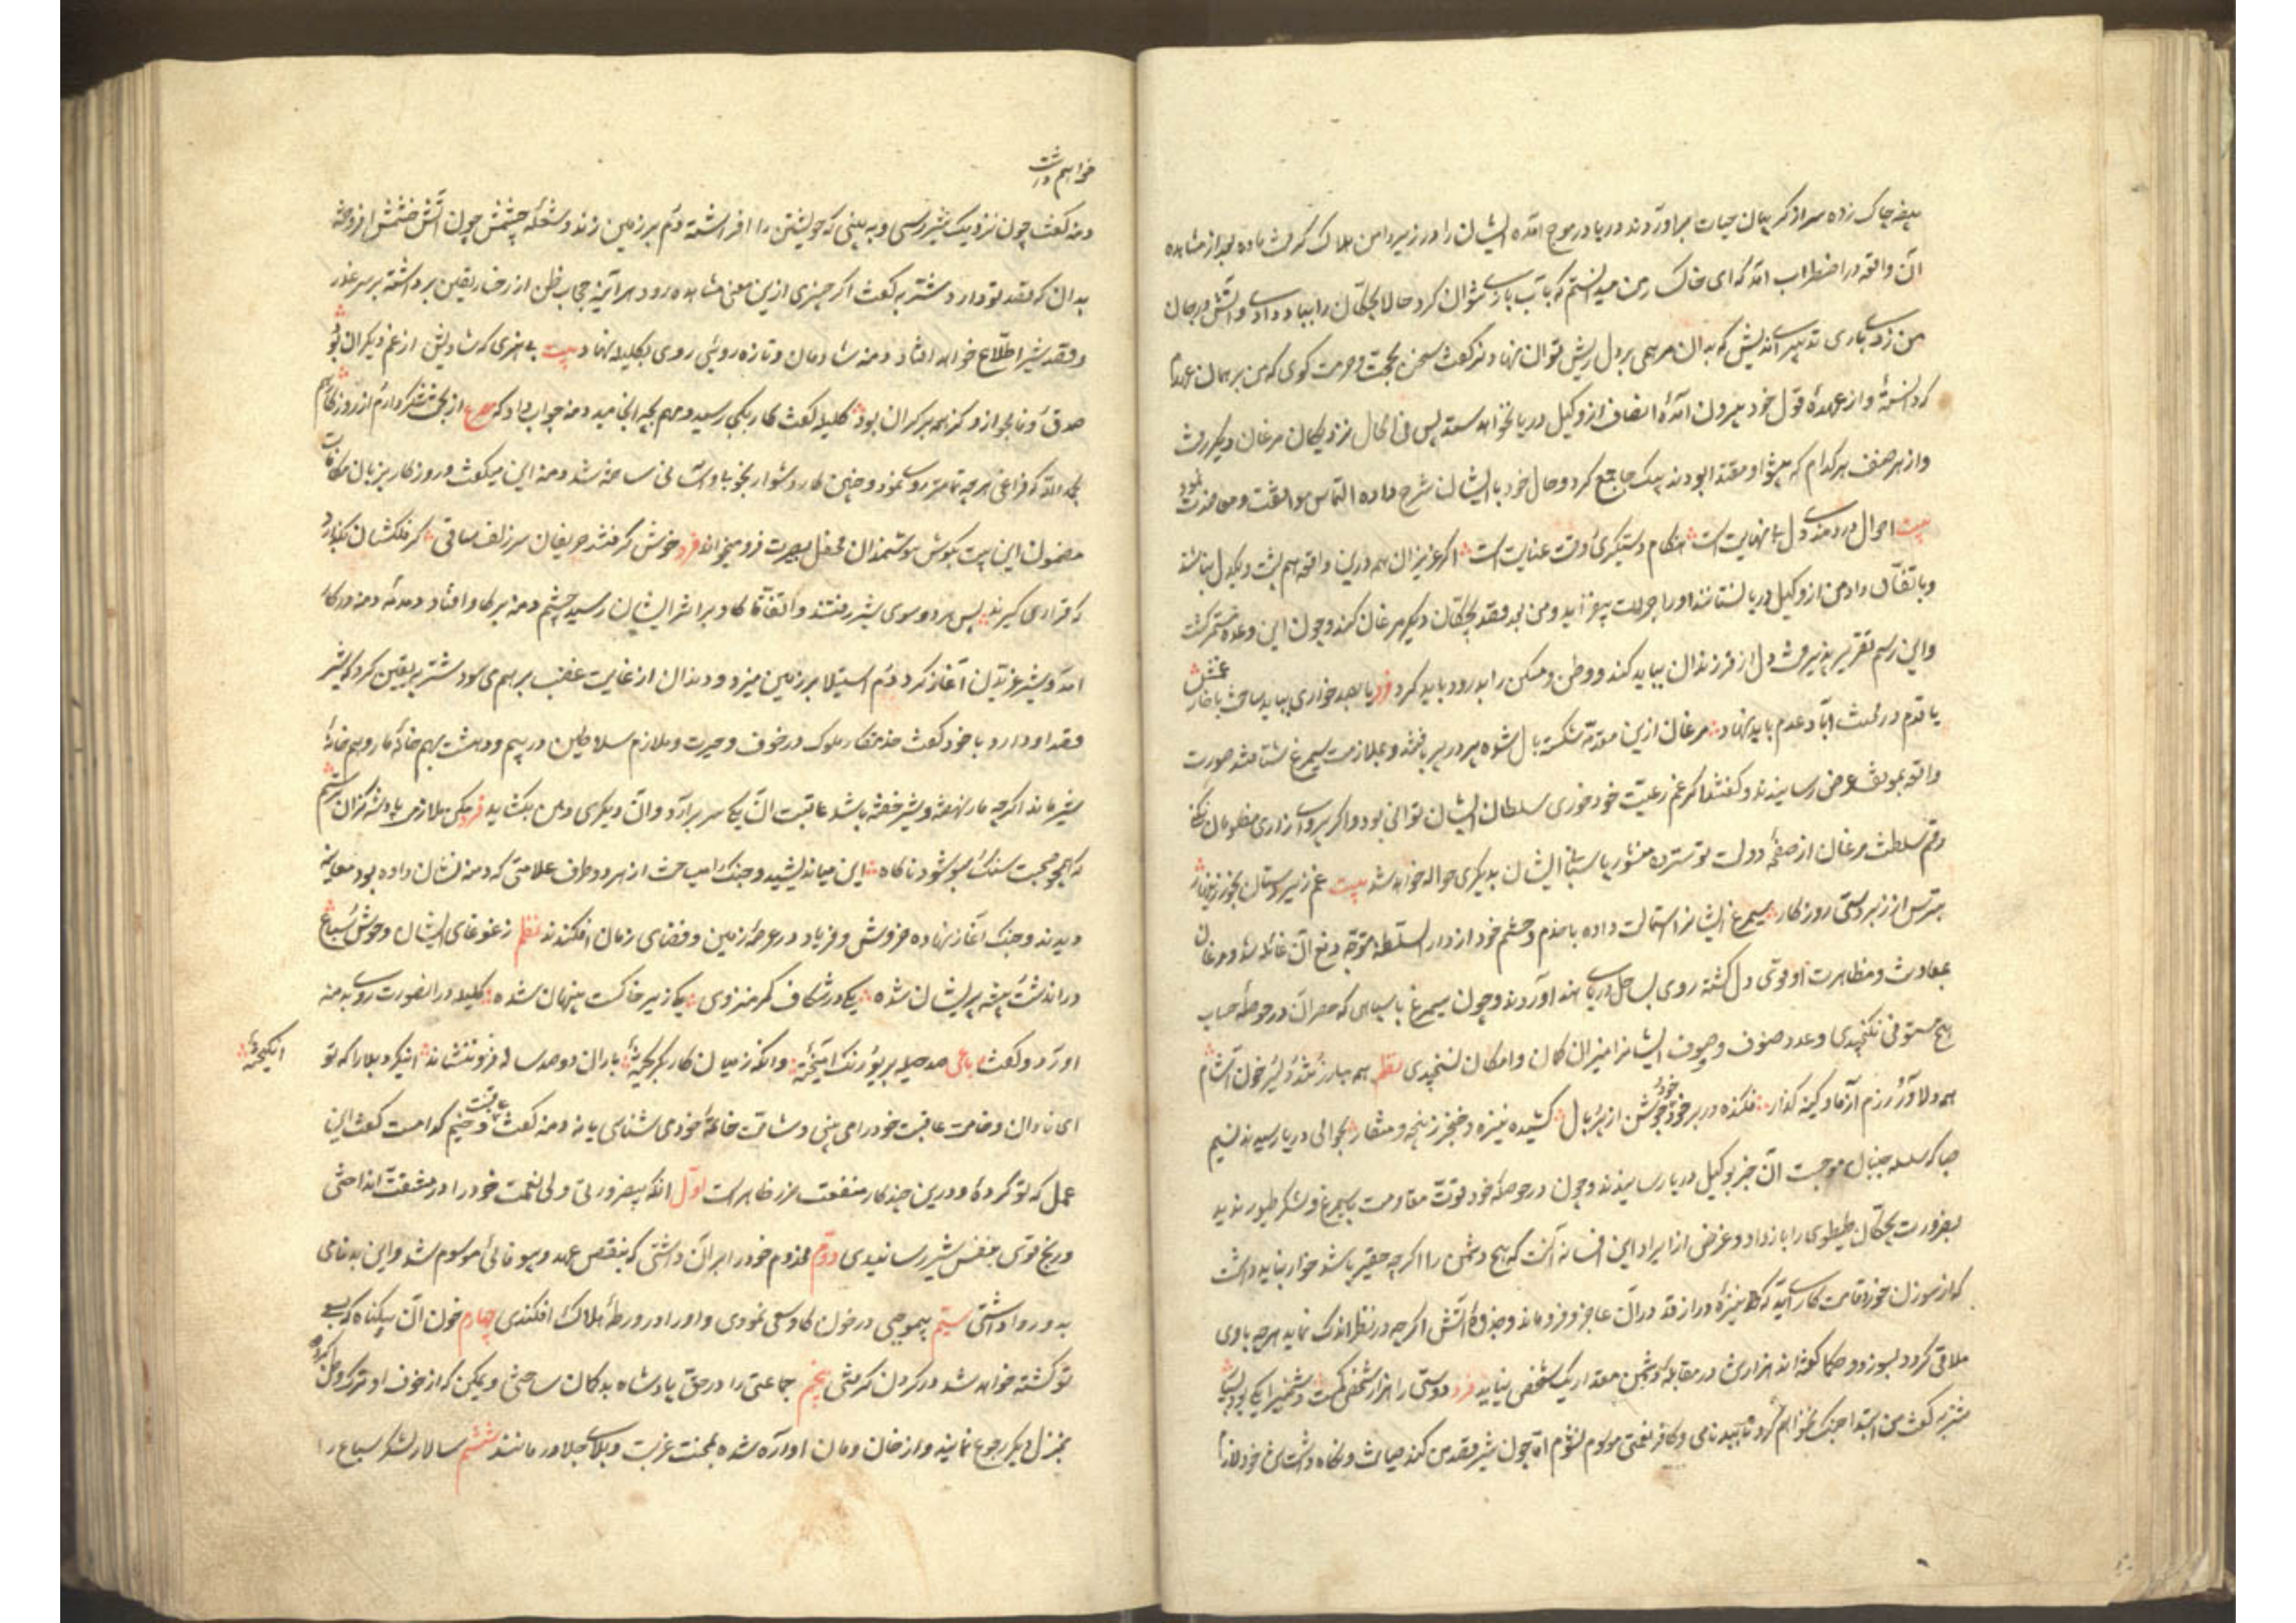 بیضه چاک زده سر از گریبان حیات برآوردند دریا در موج آمده ایشان را در زیر دامن هلاک گرفت ماده بعد از مشاهده
آن واقعه در اضطراب آمد که ای خاکسار من میدانستم که با آب بازی نتوان کرد حالا بچگان را بباد دادی و آتش در جان
من زدی باری تدبیری اندیش که بدان مرهمی بر دل ریش توان نهاد نر گفت سخن بحجت و حرمت گوی که من بر همان عهدم
کرد و از عهدهٔ قول خود بیرون آمده انصاف از وکیل دریا بخواهم ستد پس فی الحال نزدیکان مرغان دیگر رفت
و از هر صنف هر کدام که پیشوا و مقتدا بودند بیک جا جمع کرد و حال خود با ایشان شرح داده التماس موافقت و معاضدت نمود
بیت احوال دردمندی دل بنهایت است هنگام دستگیری و وقت عنایت است اگر عزیزان همه درین واقعه هم پشت و یکدل نباشند
و باتفاق داد من از وکیل دریا نستانند او را جرأت بیفزاید و من بعد قصد بچگان دیگر مرغان کند و چون این وعده مستمر گشت
و این رسم تقریر پذیرفت دل از فرزندان بباید کند و وطن و مسکن را بدرود باید کرد فرد یا بصد خواری بباید ساخت با خار غمش
یا قدم در نیست آباد عدم باید نهاد مرغان ازین مقدمه شکسته بال شده پر در پر بافتند و بملازمت سیمرغ شتافتند صورت
واقعه بموقف عرض رسانیدند و گفتند اگر غم رعیت خود خوری سلطان ایشان توانی بود و اگر پروای زاری مظلومان نکنی
رقم سلطنت مرغان از صفحهٔ دولت تو سترده منشور پاسبانی ایشان بدیگری حواله خواهد شد بیت غم زیردستان بخور زینهار
بترس از زبردستی روزگار سیمرغ ایشانرا استمالت داده با خدم و حشم خود از دار السلطنه متوجه دفع آن غائله شد و مرغان
بمعاونت و مظاهرت او قوی دل گشته روی بساحل دریای هند آوردند و چون سیمرغ با سپاهی که حصر آن در حوصلهٔ حساب
هیچ مستوفی نگنجیدی و عدد صنوف و صفوف ایشانرا میزان گمان و امکان نسنجیدی نظم همه مبارز تند و دلیر خون آشام
همه دلاور رزم آزما و کینه گذار فکنده در بر خود جوشن از پر و بال کشیده نیزه و خنجر ز پنجه و منقار بحوالی دریا رسیدند نسیم
صبا که سلسله جنبان موجست آن خبر بوکیل دریا رسانیدند و چون در حوصلهٔ خود قوت مقاومت با سیمرغ و لشکر طیور ندید
بضرورت بچگان طیطوی را باز داد و غرض از ایراد این افسانه آنست که هیچ دشمن را اگرچه حقیر باشد خوار نباید داشت
که از سوزن خرد قامت کاری آید که نیزهٔ دراز قد در آن عاجز و فرو ماند و جذوهٔ آتش اگرچه در نظر اندک نماید هرچه با وی
ملاقی گردد بسوزد و حکما گفته اند هزار دوست در مقابلهٔ دشمن مقدار یک شخص نیاید فرد دوستی را هزار شخص کمست دشمنی را یکی بود بسیار
شنزبه گفت من ابتدا جنگ نخواهم کرد تا ببدنامی و کافر نعمتی موسوم نشوم اما چون شیر قصد من کند صیانت و نگاه داشت نفس خود لازم
خواهم داشت
دمنه گفت چون نزدیک شیر رسی و به بینی که خویشتن را افراشته و دم بر زمین زند و شعلهٔ چشمش چون آتش خشمش افروخته
بدان که قصد تو دارد شنزبه گفت اگر چیزی ازین معنی مشاهده رود هر آینه حجاب ظن از رخسار یقین برداشته بر سر غدر
و قصد شیر اطلاع خواهد افتاد دمنه شادمان و تازه روی روی بکلیله نهاد بیت بی هنری که شادیش از غم دیگران بود
صدق و وفا مجو ازو کز همه بر کران بود کلیله گفت کار بکجا رسید و مهم بچه انجامید دمنه جواب داد که مصرع از بخت شکر دارم از روزگار هم
بحمد الله که فراغی هرچه تمامتر روی نمود و چنین کار دشوار بخوبی و آسانی ساخته شد دمنه این میگفت و روزگار بزبان مکافات
مضمون این بیت بگوش هوشمندان محفل بصیرت فرو میخواند فرد خوش گرفتند حریفان سر زلف ساقی گر فلکشان بگذارد
که قراری گیرند پس هر دو سوی شیر رفتند و اتفاقا گاو بر اثر ایشان رسید چشم دمنه بر گاو افتاد دمدمهٔ دمنه در کار
آمد و شیر غریدن آغاز کرد و دم استیلا بر زمین میزد و دندان از غایت غضب بر هم می سود شنزبه یقین کرد که شیر
قصد او دارد با خود گفت خدمتکار ملوک در خوف و حیرت و ملازم سلاطین در بیم و دهشت بهم خانهٔ مار و هم خانهٔ
شیر ماند اگرچه مار نهفته و شیر خفته باشد عاقبت آن یکی سر برآرد و آن دیگری دهن بگشاید فرد مکن ملازمی پادشه کزان ترسم
که همچو صحبت سنگ و سبو شود ناگاه این میاندیشید و جنگ را میساخت از هر دو طرف علامتی که دمنه نشان داده بود معاینه
دیدند و جنگ آغاز نهاده خروش و فریاد در عرصهٔ زمین و فضای زمان افکندند نظم ز غوغای ایشان وحوش و سباع
در آن دشت و بیشه پریشان شده یکی در شکاف کمر منزوی یکی زیر خاکست پنهان شده کلیله در آنصورت روی بدمنه
آورد و گفت رباعی صد حیله بر تو رنگ آمیختهٔ وانگه ز میان کار بگریختهٔ باران دو صد ساله فرو ننشاند این گرد بلا را که تو
انگیختهٔ
ای نادان وخامت عاقبت خود را می بینی و شآمت خاتمهٔ خود می شناسی یا نه دمنه گفت عاقبت وخیم کدامست گفت این
عمل که تو کردهٔ و درین چند کار منفعت ضرر ظاهر است اول آنکه بیضرورتی ولی نعمت خود را در مشقت انداختی
و رنج قوی بنفس شیر رسانیدی دوم مخدوم خود را بر آن داشتی که بنقض عهد و بیوفائی موسوم شد و این بدنامی
بدو روا داشتی سیم بیموجبی در خون گاو سعی نمودی و او را در ورطهٔ هلاک افکندی چهارم خون آن بیگناه که بسعی
تو کشته خواهد شد در گردن گرفتی پنجم جماعتی را در حق پادشاه بدگمان ساختی و یمکن که از خوف او ترک وطن کرده
بمنزل دیگر رجوع نمایند و از خان و مان آواره شده بمحنت غربت و بلای جلا درمانند ششم سالار لشکر سباع را